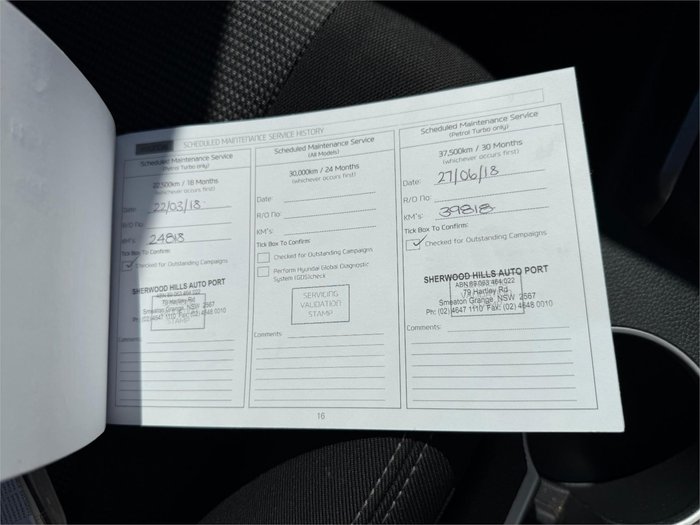 HYUNDAI SCHEDULED MAINTENANCE SERVICE HISTORY
Scheduled Maintenance Service
(Petrol Turbo only)
22,500km / 18 Months
(whichever occurs first)
Date: 22/03/18
R/O No:
KM's: 24818
Tick Box To Confirm:
Checked for Outstanding Campaigns
SHERWOOD HILLS AUTO PORT
ABN 69 063 464 022
79 Hartley Rd
Smeaton Grange, NSW 2567
Ph: (02) 4647 1110 Fax: (02) 4648 0010
STAMP
Comments:
Scheduled Maintenance Service
(All Models)
30,000km / 24 Months
(whichever occurs first)
Date:
R/O No:
KM's:
Tick Box To Confirm:
Checked for Outstanding Campaigns
Perform Hyundai Global Diagnostic
System (GDS)check
SERVICING
VALIDATION
STAMP
Comments:
Scheduled Maintenance Service
(Petrol Turbo only)
37,500km / 30 Months
(whichever occurs first)
Date: 27/06/18
R/O No:
KM's: 39818
Tick Box To Confirm:
Checked for Outstanding Campaigns
SHERWOOD HILLS AUTO PORT
ABN 69 063 464 022
79 Hartley Rd
Smeaton Grange, NSW 2567
Ph: (02) 4647 1110 Fax: (02) 4648 0010
Comments:
16